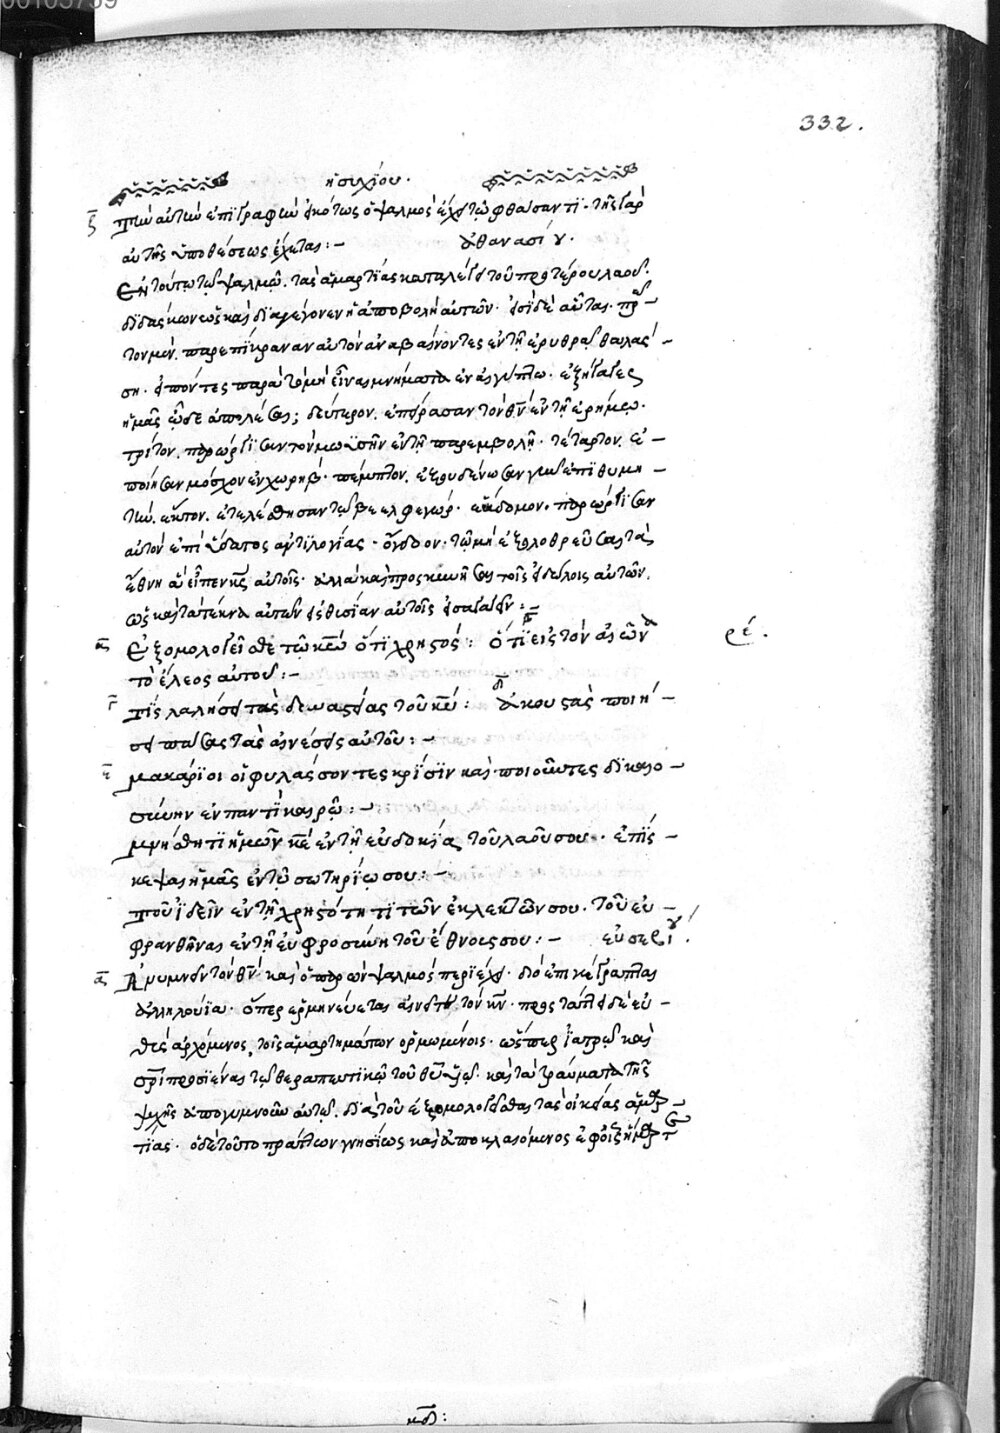 00105759
332.
ἡσυχίου.
ξ Τὴν αὐτὴν ἐπιγραφὴν εἰκότως ὁ ψαλμὸς ἔχει τῷ φθάσαντι. τῆς γὰρ
αὐτῆς ὑποθέσεως ἔχεται:– ἀθανασίου.
Ἐν τούτω τῷ ψαλμῷ. τὰς ἁμαρτίας καταλέγει τοῦ προτέρου λαοῦ.
διδάσκων ὡς καὶ δι' ἃ γέγονεν ἡ ἀποβολὴ αὐτῶν. εἰσὶ δὲ αὗται. πρῶ–
τον μὲν. παρεπίκραναν αὐτὸν ἀναβαίνοντες ἐν τῇ ἐρυθρᾷ θαλάσ–
ση. εἰπόντες παρὰ τὸ μὴ εἶναι μνήματα ἐν αἰγύπτω. ἐξήγαγες
ἡμᾶς ὧδε ἀπολέσαι; δεύτερον. ἐπείρασαν τὸν θν ἐν τῇ ἐρήμω.
τρίτον. παρώργισαν τὸν μωϋσῆν ἐν τῇ παρεμβολῇ. τέταρτον. ἐ–
ποίησαν μόσχον ἐν χωρήβ. πέμπτον. ἐξουδένωσαν γῆν ἐπιθυμη–
τήν. ἕκτον. ἐτελέσθησαν τῷ βεελφεγώρ. ἕβδομον. παρώργισαν
αὐτὸν ἐπὶ ὕδατος ἀντιλογίας. ὄγδοον. τῷ μὴ ἐξολοθρεῦσαι τὰ
ἔθνη ἃ εἶπεν κς αὐτοῖς. ἀλλὰ καὶ προσκυνῆσαι τοῖς εἰδώλοις αὐτῶν.
ὡς καὶ τὰ τέκνα αὐτῶν εἰς θυσίαν αὐτοῖς εἰσαγαγεῖν:–
α Ἐξομολογεῖσθε τῷ κω ὅτι χρηστός: β ὅτι εἰς τὸν αἰῶνα ρέ.
τὸ ἔλεος αὐτοῦ:–
γ Τίς λαλήσει τὰς δυναστείας τοῦ κυ: δ ἀκουστὰς ποιή–
σει πάσας τὰς αἰνέσεις αὐτοῦ:–
ε μακάριοι οἱ φυλάσσοντες κρίσιν καὶ ποιοῦντες δικαιο–
σύνην ἐν παντὶ καιρῷ:–
μνήσθητι ἡμῶν κε ἐν τῇ εὐδοκίᾳ τοῦ λαοῦ σου. ἐπίσ–
κεψαι ἡμᾶς ἐν τῷ σωτηρίῳ σου:–
τοῦ ἰδεῖν ἐν τῇ χρηστότητι τῶν ἐκλεκτῶν σου. τοῦ εὐ–
φρανθῆναι ἐν τῇ εὐφροσύνη τοῦ ἔθνους σου:– εὐσεβίου.
α Αἰνυμνεῖν τὸν θν καὶ ὁ παρὼν ψαλμὸς περιέχει. διὸ ἐπιγέγραπται
ἀλληλούϊα. ὅπερ ἑρμηνεύεται αἰνεῖτε τὸν κν. πρὸς τάττει δὲ εὐ–
θὲς ἀρχόμενος, τοῖς ἁμαρτημάτων ὁρμωμένοις. ὥσπερ ἰατρῷ καὶ
σρι προσϊέναι τῷ θεραπευτικῷ τοῦ θυ λόγῳ. καὶ τὰ τραύματα τῆς
ψυχῆς ἀπογυμνοῦν αὐτῷ. διὰ τοῦ ἐξομολογεῖσθαι τὰς οἰκείας ἁμαρ–
τίας. ὁ δὲ τοῦτο πράττων γνησίως καὶ ἀποκλαιόμενος ἐφ' οἷς ἥμαρτεν
μδ: